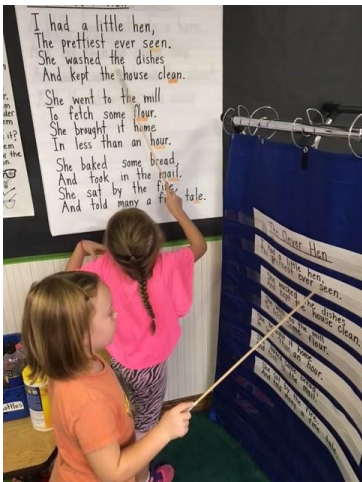 I had a little hen,
The prettiest ever seen.
She washed the dishes
And kept the house clean.
She went to the mill
To fetch some flour.
She brought it home
In less than an hour.
She baked some bread,
And took in the mail.
She sat by the fire,
And told many a tale.
The Clever Hen
I had a little hen,
The prettiest ever seen.
She washed the dishes
And kept the house clean.
some flour.
it home
an hour.
some bread,
the mail.
the fire,
And told many a fine tale.